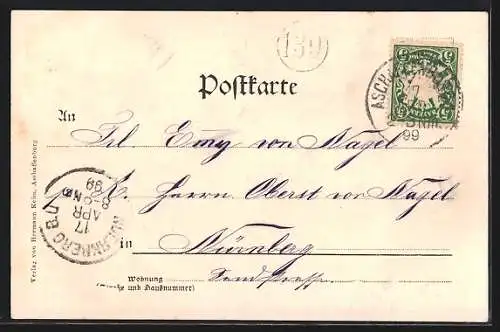 139
Postkarte
ASCHAFFENBURG
99
An
Frl. Emy von Nagel
Herrn Oberst von Nagel
NUERNBERG B.U
17
APR
99
8-9 N
in Nürnberg
Wohnung
(Straße und Hausnummer)
Verlag von Hermann Kehn, Aschaffenburg